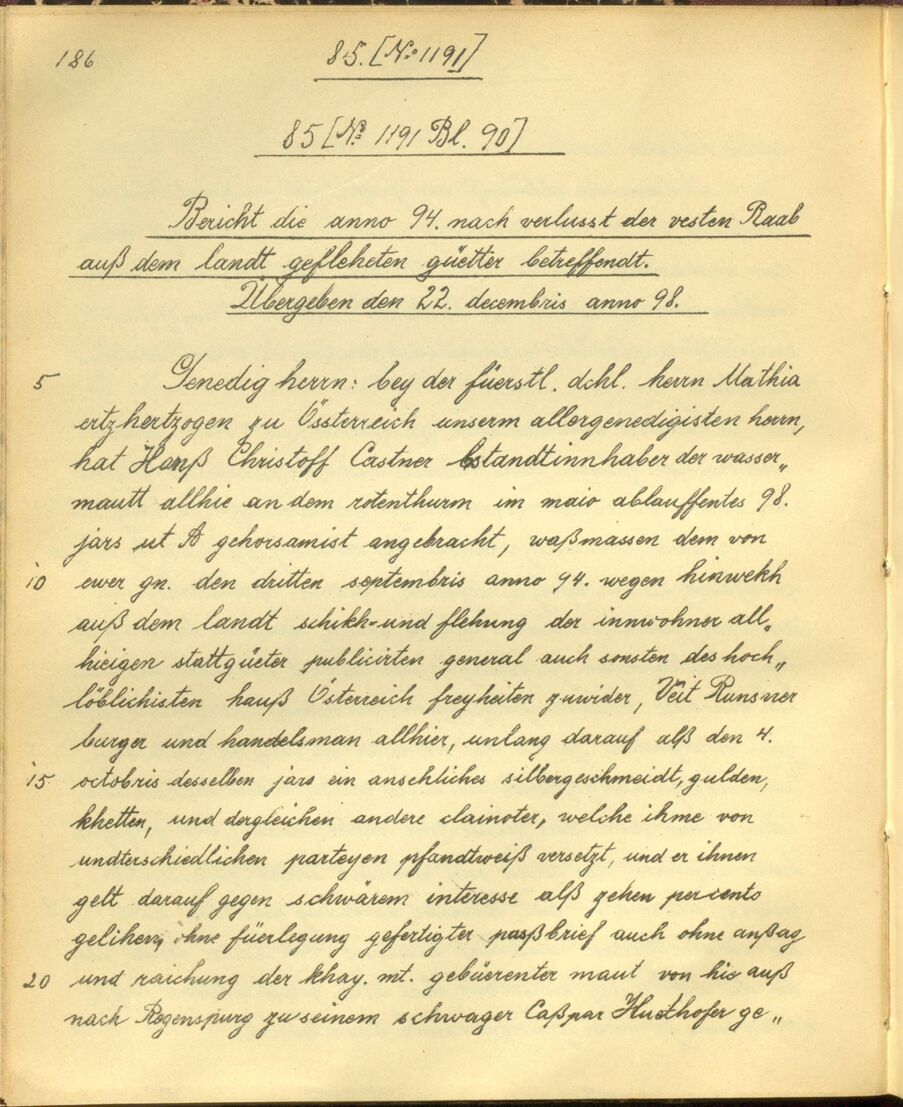 186
85. [No 1191]
85 [No 1191 Bl. 90]
Bericht die anno 94. nach verlusst der vesten Raab
auß dem landt gefleheten güetter betreffendt.
Übergeben den 22. decembris anno 98.
5 Genedig herrn: bey der füerstl. dchl. herrn Mathia
ertzhertzogen zu Össterreich unserm allergenedigisten herrn,
hat Hanß Christoff Castner bstandtinnhaber der wasser„
mautt allhie an dem rotenthurm im maio ablauffentes 98.
jars ut A gehorsamist angebracht, waßmassen dem von
10 ewer gn. den dritten septembris anno 94. wegen hinwekh
auß dem landt schikh- und flehung der innwohner all„
hieigen stattgüeter publicirten general auch sonsten des hoch„
löblichisten hauß Österreich freyheiten zuwider, Veit Runsner
burger und handelsman allhier, unlang darauf alß den 4.
15 octobris desselben jars ein ansehliches silbergeschmeidt, gulden,
khetten, und dergleichen andere clainoter, welche ihme von
undterschiedlichen parteyen pfandtweiß versetzt, und er ihnen
gelt darauf gegen schwärem interesse alß zehen percento
gelihen, ohne füerlegung gefertigter paßbrief auch ohne anßag
20 und raichung der khay. mt. gebüerenter maut von hie auß
nach Regenspurg zu seinem schwager Caßpar Huethofer ge„